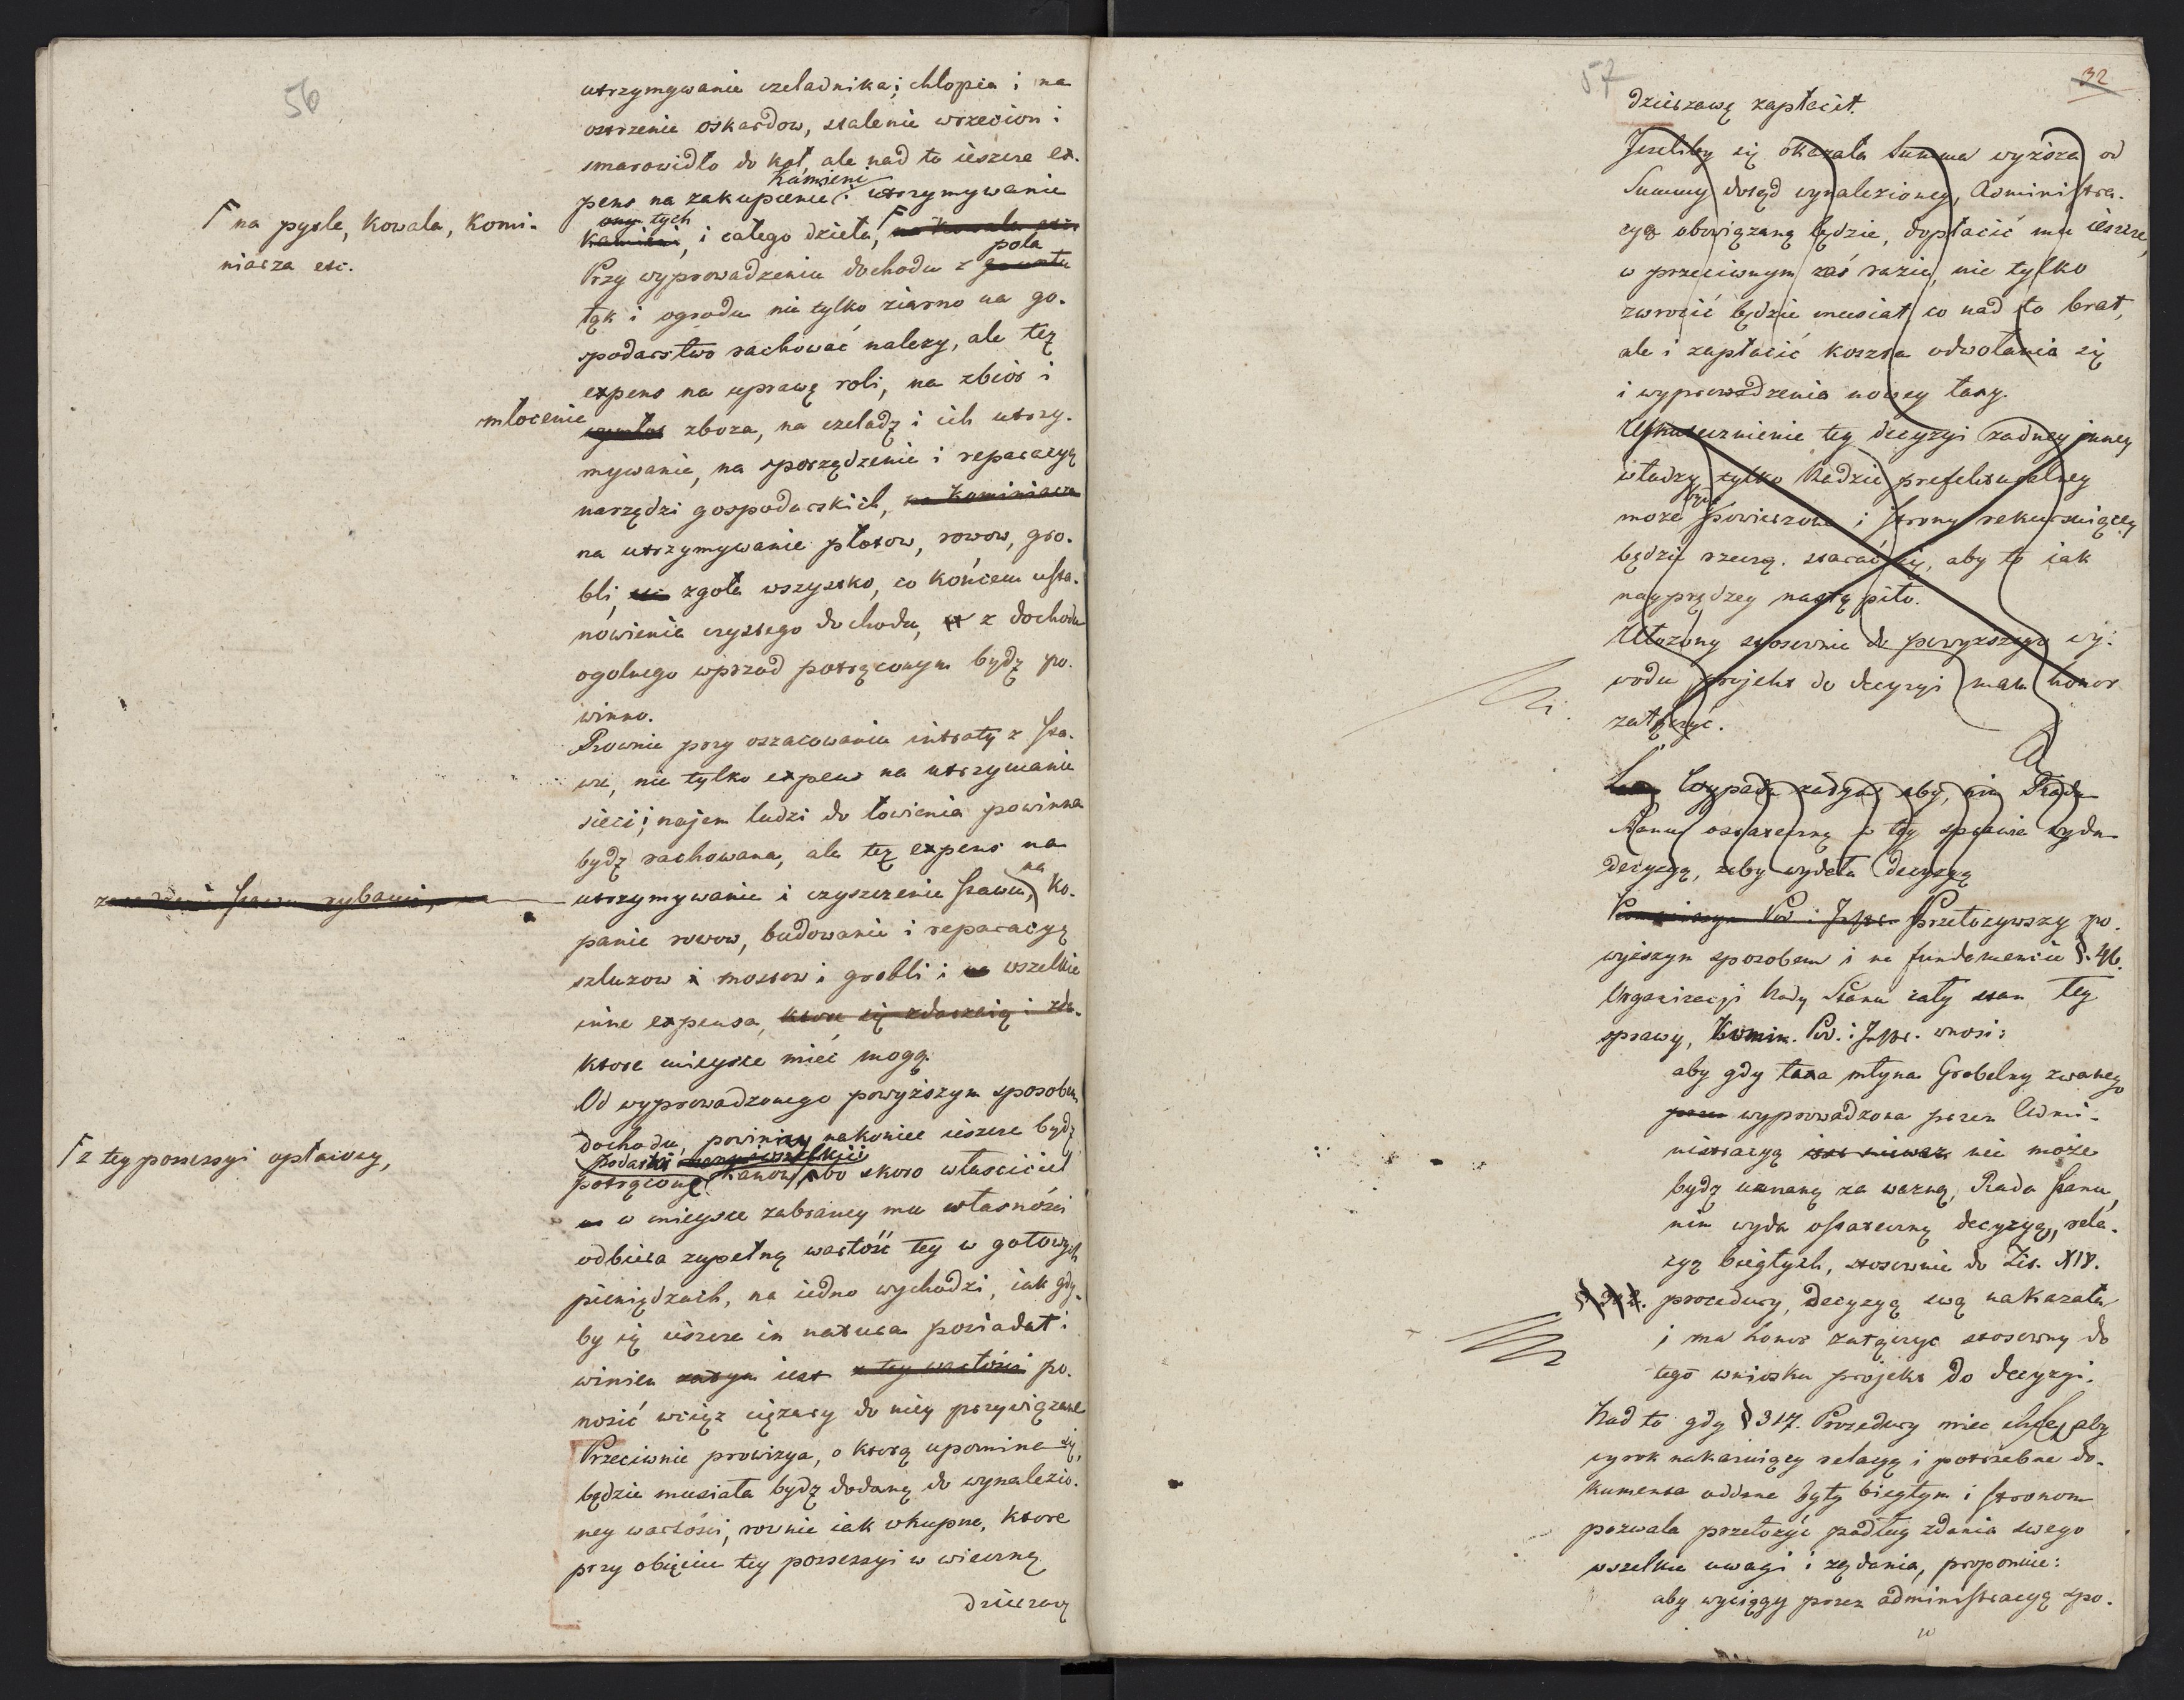 56
utrzymywanie czeladnika; chłopca i na
ostrzenie oskardow, stalenie wrzecion i
smarowidło do koł, ale nad to ieszcze ex-
Kamieni
pens na zakupienie i utrzymywanie
tych
kamieni, i całego dzieła, Γ na Kowala
Γ na pytle, Kowala, Komi-
niarza etc.
pola
Przy wyprowadzeniu dochodu z gruntu
łąk i ogrodu nie tylko ziarno na go-
spodarstwo rachować nalezy, ale też
expens na uprawę roli, na zbiór i
młocenie
zboza, na czeladź i ich utrzy-
mywanie, na sporządzenie i reparacyą
narzędzi gospodarskich, na Kominiarza
na utrzymywanie płotow, rowow, gro-
bli, zgoła wszystko, co końcem usta-
nowienia czystego dochodu, z dochodu
ogolnego wprzod potrąconym bydź po-
winno.
Rownie przy oszacowaniu intraty z sta-
wu, nie tylko expens na utrzymanie
sieci i najem ludzi do łowienia powinna
bydź rachowana, ale też expens na
na
utrzymywanie i czyszczenie stawu, ko-
stawu rybami,
panie rowow, budowanie i reparacyą
szluzow i mostow i grobli i na wszelkie
inne expensa, ktore się zdarzaią i zda-
ktore mieysce mieć mogą.
Od wyprowadzonego powyższym sposobem
dochodu, powinien nakoniec ieszcze bydź
Γ z tey possessyi opłaciony,
podatki
potrącony kanon, bo skoro właściciel
w mieysce zabraney mu własności
odbiera zupełną wartość tey w gotowych
pieniądzach, na iedno wychodzi, iak gdy-
by ią ieszcze in natura posiadał i
winien zatym iest z tey wartości po-
nosić wciąż ciężary do niey przywiązane
Przeciwnie prowizya, o ktorą upomina się,
będzie musiała bydź dodaną do wynalezio-
ney wartości, rownie iak wkupne, ktore
przy obięciu tey possessyi w wieczną
dzierzawę
57
32
dzierzawę zapłacił.
Jeseliby się okazała Summa wyższa od
Summy dotąd wynalezioney, Administra-
cya obowiązaną będzie, dopłacić mu ieszcze,
w przeciwnym zaś razie, nie tylko
zwrocić będzie musiał, co nad to brał,
ale i zapłacić koszta odwołania się
i wyprowadzenia nowey taxy.
Uskutecznienie tey decyzyi żadney inney
władzy tylko Radzie prefekturalney
bydź
może powierzone i strony rekurruiącey
będzie rzeczą starać się, aby to iak
nayprędzey nastąpiło.
Ułożony stosownie do powyższego wy-
wodu projekt do decyzyi mam honor
załączyć.
Wypada zatym aby, nim Rada
Stanu ostateczną w tey sprawie wyda
decyzyą, żeby wydała decyzyą
Przełożywszy po-
wyższym sposobem i na fundamencie §. 46.
Organizacji Rady Stanu cały stan tey
sprawy, Komm. Rd. i Instr. wnosi:
aby gdy taxa młyna Grobelny zwanego
przez wyprowadzona przez Admi-
nistracyą nie może
bydź uznaną za ważną, Rada Stanu,
nim wyda ostateczną decyzyą, rela-
cyą biegłych, stosownie do Tit. XIV.
procedury, decyzyą swą nakazała
i ma honor załączyć stosowny do
tego wniosku projekt do decyzyi.
Nad to gdy § 317. Procedury mieć chce, aby
wyrok nakazuiący relacyą i potrzebne do-
kumenta oddane były biegłym i stronom
pozwala przełożyć podług zdania swego
wszelkie uwagi i żądania, proponuie:
aby wyciągy przez administracyą spo-